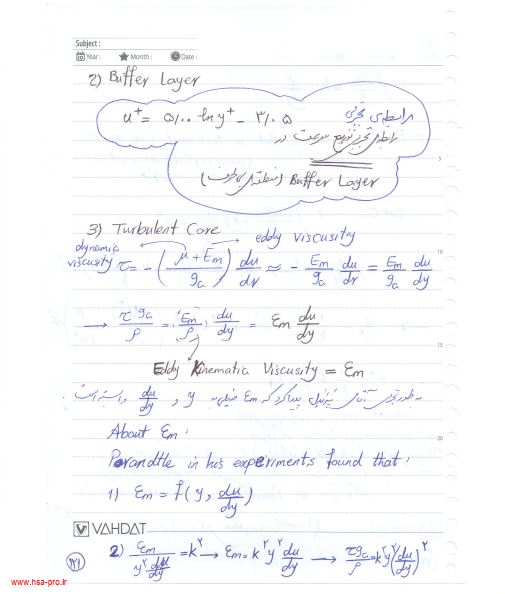 Subject :
Year : Month : Date :
2) Buffer Layer
u⁺ = ۵/۰۰ ln y⁺ - ۳/۰۵
رابطه‌ی تجربی
توزیع سرعت در
Buffer Layer
3) Turbulent Core
dynamic viscusity
eddy viscusity
τ = - ( μ + Em / gc ) du/dr ≈ - Em/gc du/dr = Em/gc du/dy
→ τ gc / ρ = ( Em / ρ ) du/dy = εm du/dy
Eddy Kinematic Viscusity = εm
به طور تجربی آقای پیدا کرد که εm به y و du/dy وابسته است
About εm :
Parandtle in his experiments found that :
1) εm = f ( y , du/dy )
VAHDAT
2) εm / y² du/dy = k² → εm = k² y² du/dy → τ gc / ρ = k² y² (du/dy)²
www.hsa-pro.ir